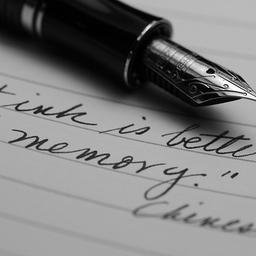 ink is better
memory."
Chines